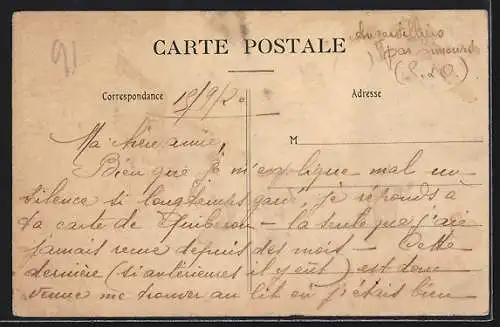 91
Angervilliers
par Limours
(S. & O.)
CARTE POSTALE
Correspondance
Adresse
19/9/20
M
Ma chère amie,
Bien que je m'explique mal un
silence si longtemps gardé, je réponds à
ta carte de Quiberon – la seule que j'aie
jamais reçue depuis des mois – Cette
dernière (si antérieures il y eût) est donc
venue me trouver au lit où j'étais bien